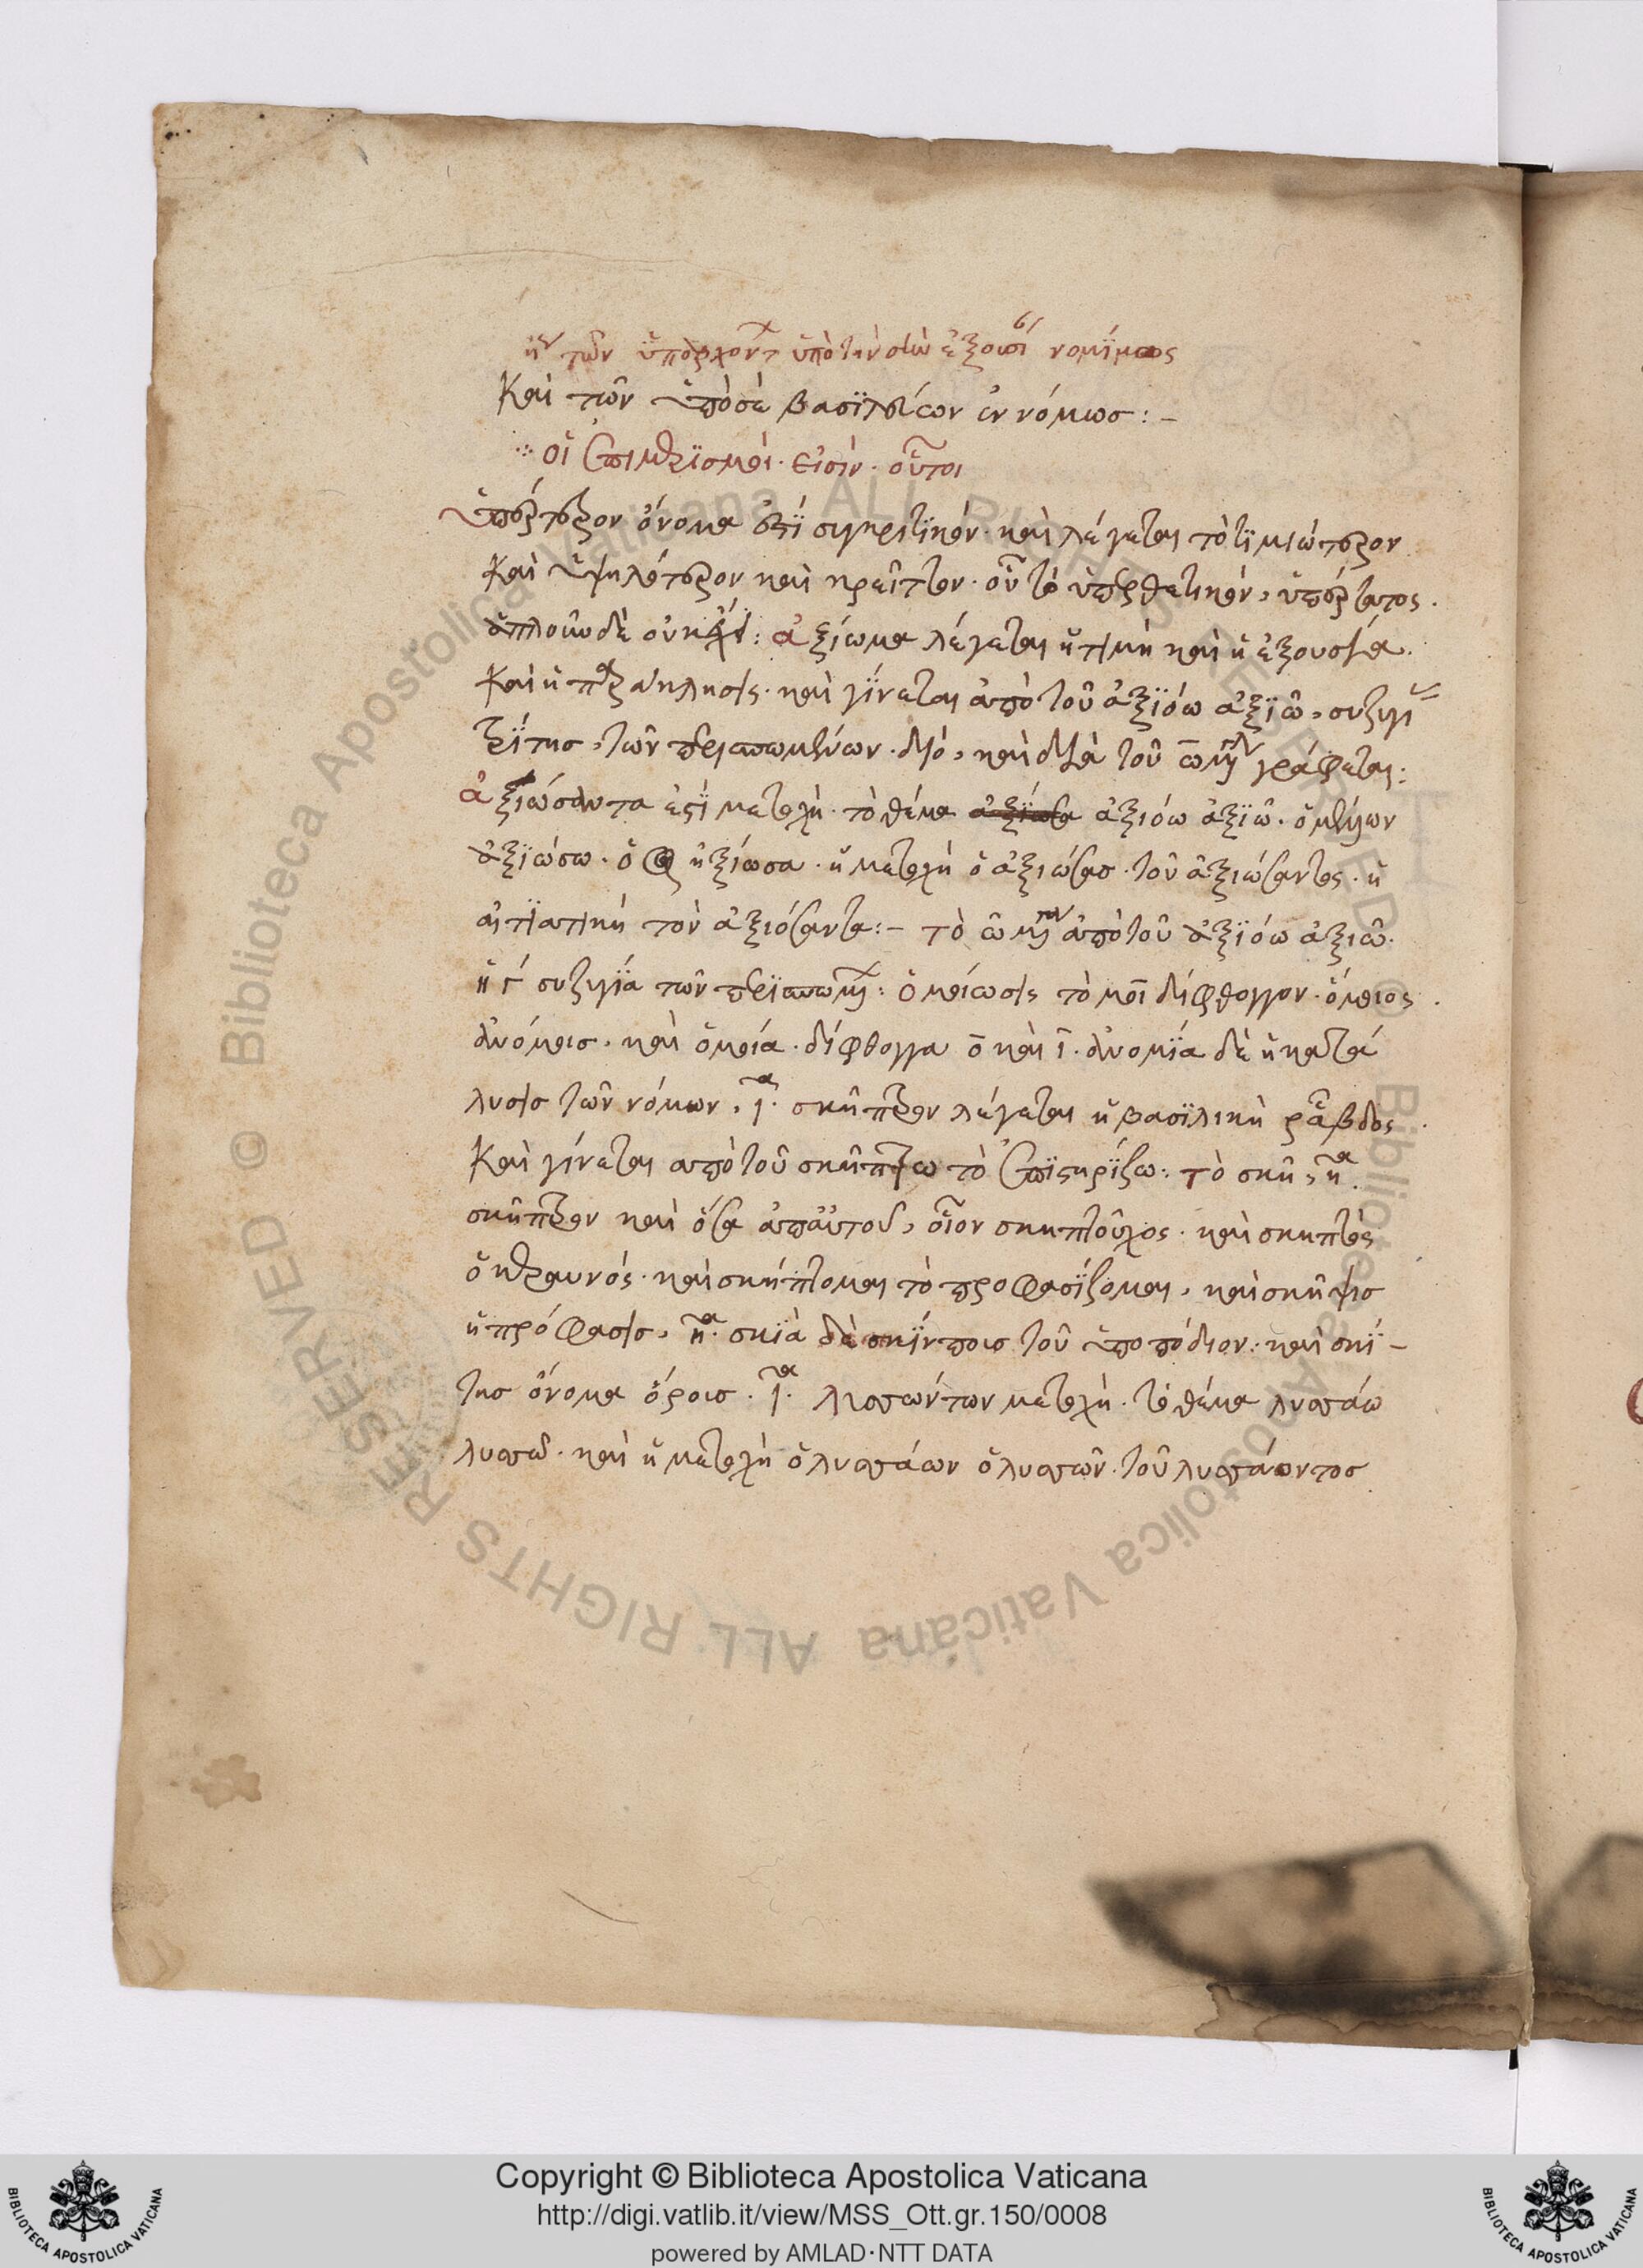 τῶν ὑπὸ τὴν σὴν ἐξουσί νομίμως
Καὶ τῶν ὑπὸ σὲ βασϊλέων ἐννόμωσ : –
οἱ ἐπιμερϊσμοί · εἰσὶν · οὗτοι
ὑπέρτερον ὄνομα ἐστῒ συγκριτϊκόν · καὶ λέγεται τὸ τϊμιώτερον
Καὶ ὑψηλότερον καὶ κρεῖττον · οὗ τὸ ὑπερθετικόν, ὑπέρτατος ·
ἁπλοῦν δὲ οὐκ : ἀξίωμα λέγεται ἡ τιμὴ καὶ ἡ ἐξουσία ·
Καὶ ἡ παράκλησις · καὶ γΐνεται ἀπὸ τοῦ ἀξϊόω ἀξϊῶ, συζυγϊ
τρΐτησ, τῶν περισπωμένων · διὸ, καὶ διὰ τοῦ ω μεγ γράφεται :
ἀξιώσαντα ἐστῒ μετοχὴ · τὸ θέμα ἀξιόω ἀξϊῶ · ὁ μέλλων
ἀξϊώσω · ὁ ἠξίωσα · ἡ μετοχὴ ὁ ἀξιώσασ · τοῦ ἀξιώσαντος · ἡ
αἰτϊατικὴ τὸν ἀξιόσαντα : – τὸ ω μεγ ἀπὸ τοῦ ἀξϊόω ἀξιῶ ·
ἡ γ συζυγΐα τῶν περϊσπωμ : ὁμοίωσις τὸ μοι δίφθογγον · ὅμοιος ·
ἀνόμοισ · καὶ ὁμοία · δίφθογγα ο καὶ ι · ἀνομΐα δὲ ἡ κατά
λυσισ τῶν νόμων, ι · σκῆπτρον λέγεται ἡ βασϊλικὴ ράβδος ·
Καὶ γίνεται ἀπὸ τοῦ σκήπτω τὸ ἐπϊστηρΐζω : τὸ σκῆ, η ·
σκῆπτρον καὶ ὅσα ἀπ αὐτοῦ, οἷον σκηπτοῦχος · καὶ σκηπτὸς
ὁ κεραυνός · καὶ σκήπτομαι τὸ προφασΐζομαι, καὶ σκῆψισ
ἡ πρόφασισ, η · σκϊὰ δὲ σκΐνποισ τοῦ ὑποπόδιον : καὶ σκΐ –
τησ ὄνομα ὄροισ · ι · λισσώντων μετοχὴ · τὸ θέμα λυσσάω
λυσσῶ · καὶ ἡ μετοχὴ ὁ λυσσάων ὁ λυσσῶν · τοῦ λυσσάοντοσ
Copyright © Biblioteca Apostolica Vaticana
http://digi.vatlib.it/view/MSS_Ott.gr.150/0008
powered by AMLAD·NTT DATA